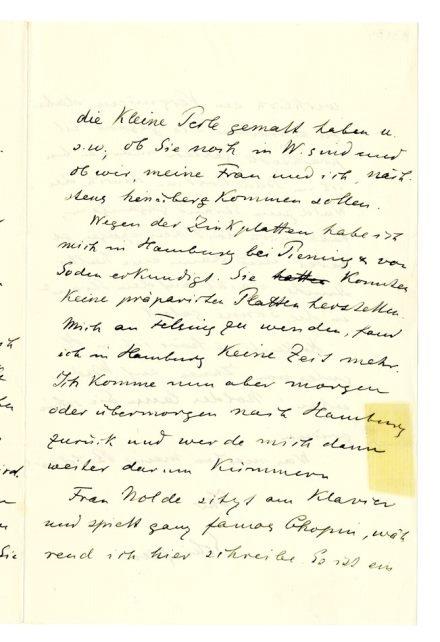 die Kleine Perle gemalt haben u.
s.w., ob Sie noch in W. sind und
ob wir, meine Frau und ich, näch-
stens herüber kommen sollen.
Wegen der Zinkplatten habe ich
mich in Hamburg bei Piening & von
Soden erkundigt. Sie hatten konnten
keine präparirten Platten herstellen.
Mich an Felsing zu wenden, fand
ich in Hamburg keine Zeit mehr.
Ich komme nun aber morgen
oder übermorgen nach Hamburg
zurück und werde mich dann
weiter darum kümmern
Frau Nolde sitzt am Klavier
und spielt ganz famos Chopin, wäh
rend ich hier schreibe. Es ist ein